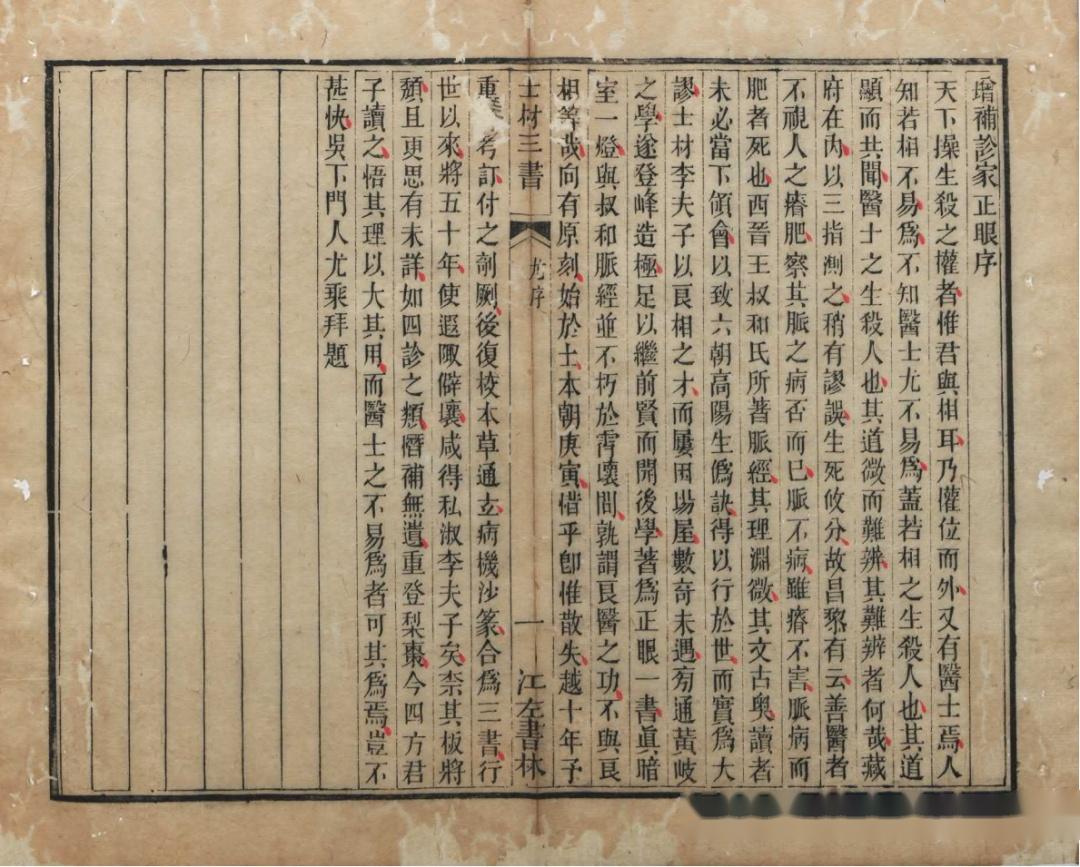 增補診家正眼序
天下操生殺之權者惟君與相耳乃權位而外又有醫士焉人
知若相不易爲不知醫士尤不易爲蓋若相之生殺人也其道
顯而共聞醫士之生殺人也其道微而難辨其難辨者何哉藏
府在內以三指測之稍有謬誤生死攸分故昌黎有云善醫者
不視人之瘠肥察其脈之病否而已脈不病雖瘠不害脈病而
肥者死也西晉王叔和氏所著脈經其理淵微其文古奧讀者
未必當下領會以致六朝高陽生僞訣得以行於世而實爲大
謬士材李夫子以良相之才而屢困場屋數奇未遇旁通黃岐
之學遂登峰造極足以繼前賢而開後學著爲正眼一書眞暗
室一燈與叔和脈經並不朽於霄壤間孰謂良醫之功不與良
相等哉向有原刻始於土本朝庚寅惜乎卽惟散失越十年予
士材三書 尤序 一 江左書林
重考訂付之剞劂後復挍本草通玄病機沙篆合爲三書行
世以來將五十年使遐陬僻壤咸得私淑李夫子矣柰其板將
頹且更思有未詳如四診之類僭補無遺重登梨棗今四方君
子讀之悟其理以大其用而醫士之不易爲者可其爲焉豈不
甚快吳下門人尤乘拜題